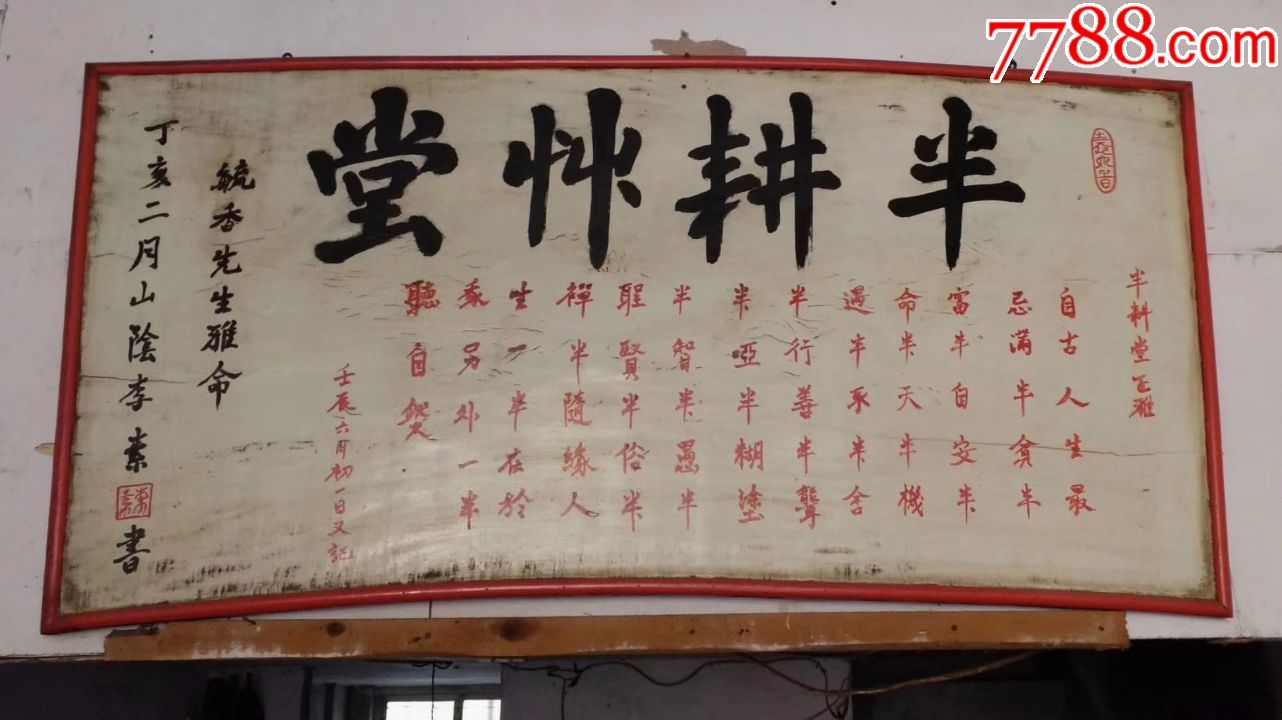 半耕艸堂
自古人生最
忌滿半貪半
富半自安半
命半天半機
遇半取半舍
半行善半聾
半啞半糊塗
半智半愚半
聖賢半俗半
禪半隨緣人
生一半在於
我另外一半
聽自然
壬辰六月初一日又記
毓香先生雅命
丁亥二月山陰李素書
7788.com